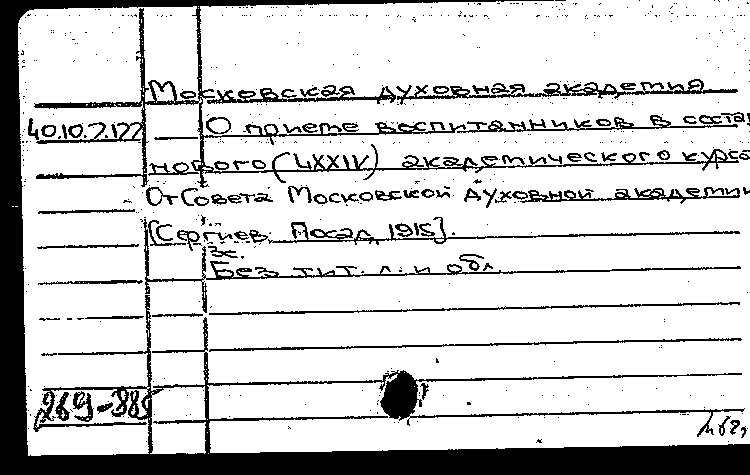 Московская духовная академия
40.10.7.122 О приеме воспитанников в соста
нового (LXXIV) академического курса
От Совета Московской Духовной академии
[Сергиев Посад, 1915].
3с.
Без тит. л. и обл.
269-885